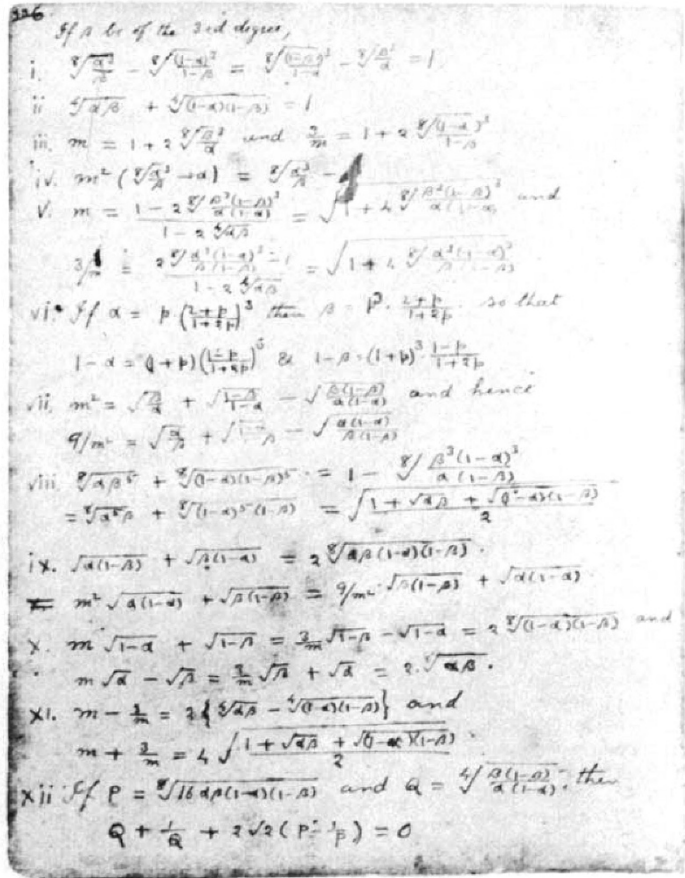 336
If β be of the 3rd degree,
i. ⁸√(α³/β) - ⁸√((1-α)³/(1-β)) = ⁸√((1-β)³/(1-α)) - ⁸√(β³/α) = 1
ii ⁴√(αβ) + ⁴√((1-α)(1-β)) = 1
iii. m = 1 + 2 ⁸√(β³/α) and 3/m = 1 + 2 ⁸√((1-α)³/(1-β))
iv. m² (⁸√(α³/β) - α) = ⁸√(α³/β) -
v. m = (1 - 2 ⁸√(β³(1-β)³/(α(1-α))))/(1 - 2 ⁴√(αβ)) = √(1 + 4 ⁸√(β³(1-β)³/(α(1-α)))) and
3/m = (2 ⁸√(α³(1-α)³/(β(1-β))) - 1)/(1 - 2 ⁴√(αβ)) = √(1 + 4 ⁸√(α³(1-α)³/(β(1-β))))
vi. If α = p·((2+p)/(1+2p))³ then β = p³·(2+p)/(1+2p) so that
1-α = (1+p)((1-p)/(1+2p))³ & 1-β = (1+p)³·(1-p)/(1+2p)
vii. m² = √(β/α) + √((1-β)/(1-α)) - √(β(1-β)/(α(1-α))) and hence
9/m² = √(α/β) + √((1-α)/(1-β)) - √(α(1-α)/(β(1-β)))
viii. ⁸√(αβ⁵) + ⁸√((1-α)(1-β)⁵) = 1 - ⁸√(β³(1-α)³/(α(1-β)))
= ⁸√(α⁵β) + ⁸√((1-α)⁵(1-β)) = √((1 + √(αβ) + √((1-α)(1-β)))/2)
ix. √(α(1-β)) + √(β(1-α)) = 2 ⁸√(αβ(1-α)(1-β)).
= m² √(α(1-α)) + √(β(1-β)) = 9/m² · √(β(1-β)) + √(α(1-α)).
x. m √(1-α) + √(1-β) = 3/m √(1-β) - √(1-α) = 2 ⁸√((1-α)(1-β)) and
m√α - √β = 3/m √β + √α = 2. ⁸√(αβ).
xi. m - 3/m = 2{⁴√(αβ) - ⁴√((1-α)(1-β))} and
m + 3/m = 4 √((1 + √(αβ) + √((1-α)(1-β)))/2)
xii If P = ⁸√(16αβ(1-α)(1-β)) and Q = ⁴√(β(1-β)/(α(1-α))), then
Q + 1/Q + 2√2 (P - 1/P) = 0